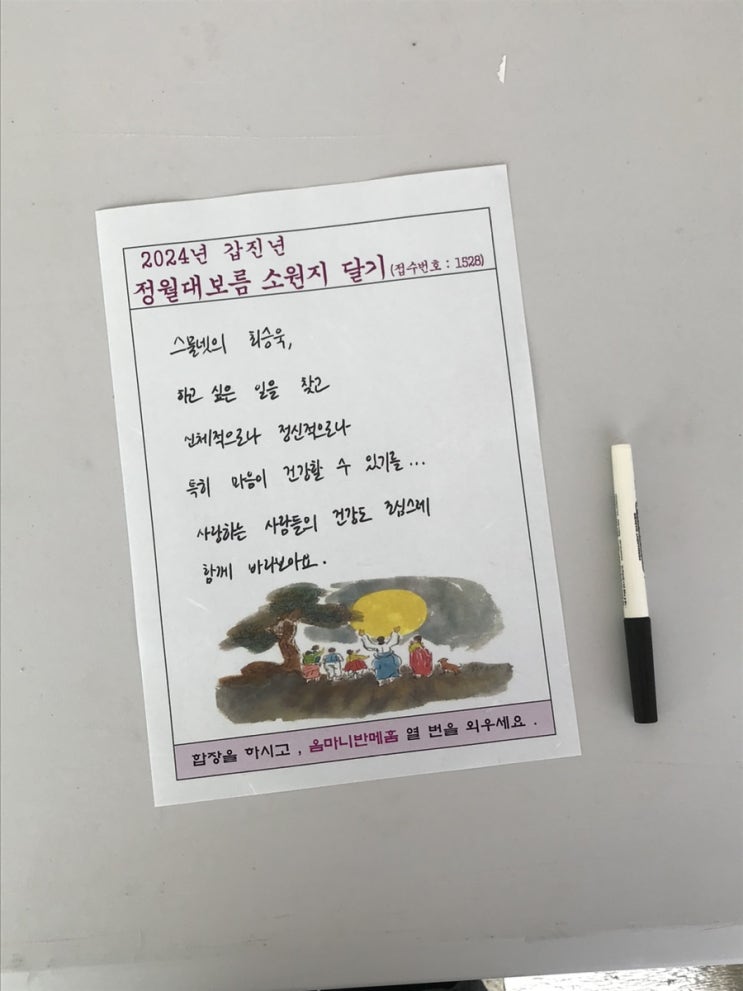 2024년 갑진년
정월대보름 소원지 달기 (접수번호 : 1528)
스물넷의 최승욱,
하고 싶은 일을 찾고
신체적으로나 정신적으로나
특히 마음이 건강할 수 있기를...
사랑하는 사람들의 건강도 조심스레
함께 바라보아요.
합장을 하시고, 옴마니반메훔 열 번을 외우세요.